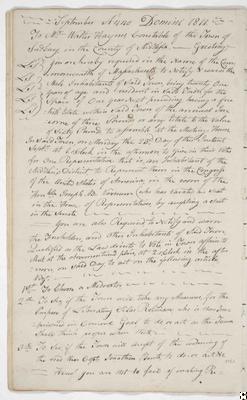 September Anno Domini 1811
To Mr Walter Haynes Constable of the Town of
Sudbury in the County of Middlesex Greeting
You are hereby required in the Name of the Com
monwealth of Massachusetts to Notify & warn the
Male Inhabitants of Said Town being twenty one
years of age and resident in Said Town for the
Space of One year Next preceding having a free
hold Estate within Said Town of the annual In-
come of three pounds or any Estate to the value
of Sixty Pounds to assemble at the Meeting House
In Said Town on Monday the 23d Day of this Instant
Sept. at O Clock in the afternoon to give in their votes
for One Representative that is an Inhabitant of the
Middlesex District to Represent them in the Congress
of the United States of America in the room of The
Honble Joseph B. Varnum who has vacated his seat
in the House of Representatives by accepting a Seat
in the Senate
You are also Required to Notify and warn
the Freeholders and other Inhabitants of Said Town
Qualified as the Law directs to Vote in Town affairs to
Meet at the aforementioned place, at O Clock in the after
noon on Said Day to act on the following articles
Viz.
1st To Choose a Moderator
2d To See if the Town will take any Measures for the
Purpose of Liberating Silas who is now Im
prisoned in Concord Goal to do or act as the Town
Shall think proper when Met
3d To See if the Town will accept of the widening of
the road Near Capt. Jonathan to do or act &c
Hereof you are not to fail of making Re